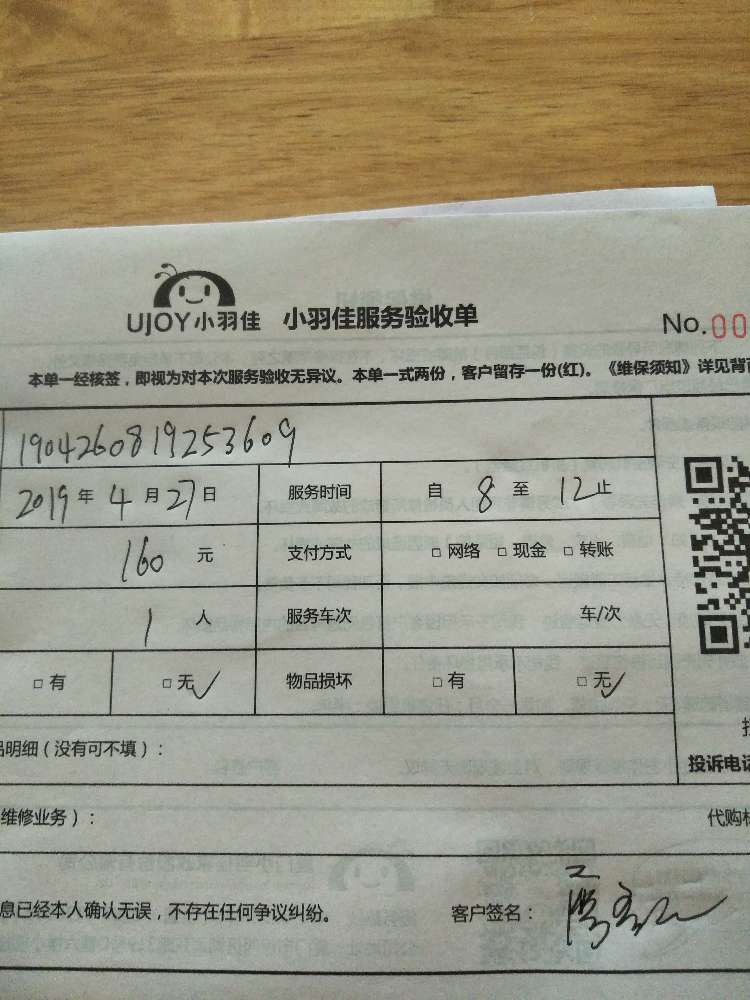 UJOY小羽佳 小羽佳服务验收单 No.00
本单一经核签，即视为对本次服务验收无异议。本单一式两份，客户留存一份(红)。《维保须知》详见背面
1904260819253609
2019 年 4 月 27 日 服务时间 自 8 至 12 止
160 元 支付方式 □ 网络 □ 现金 □ 转账
1 人 服务车次 车/次
□ 有 □ 无✓ 物品损坏 □ 有 □ 无✓
品明细（没有可不填）：
投诉电话
维修业务）：
代购材
息已经本人确认无误，不存在任何争议纠纷。 客户签名：